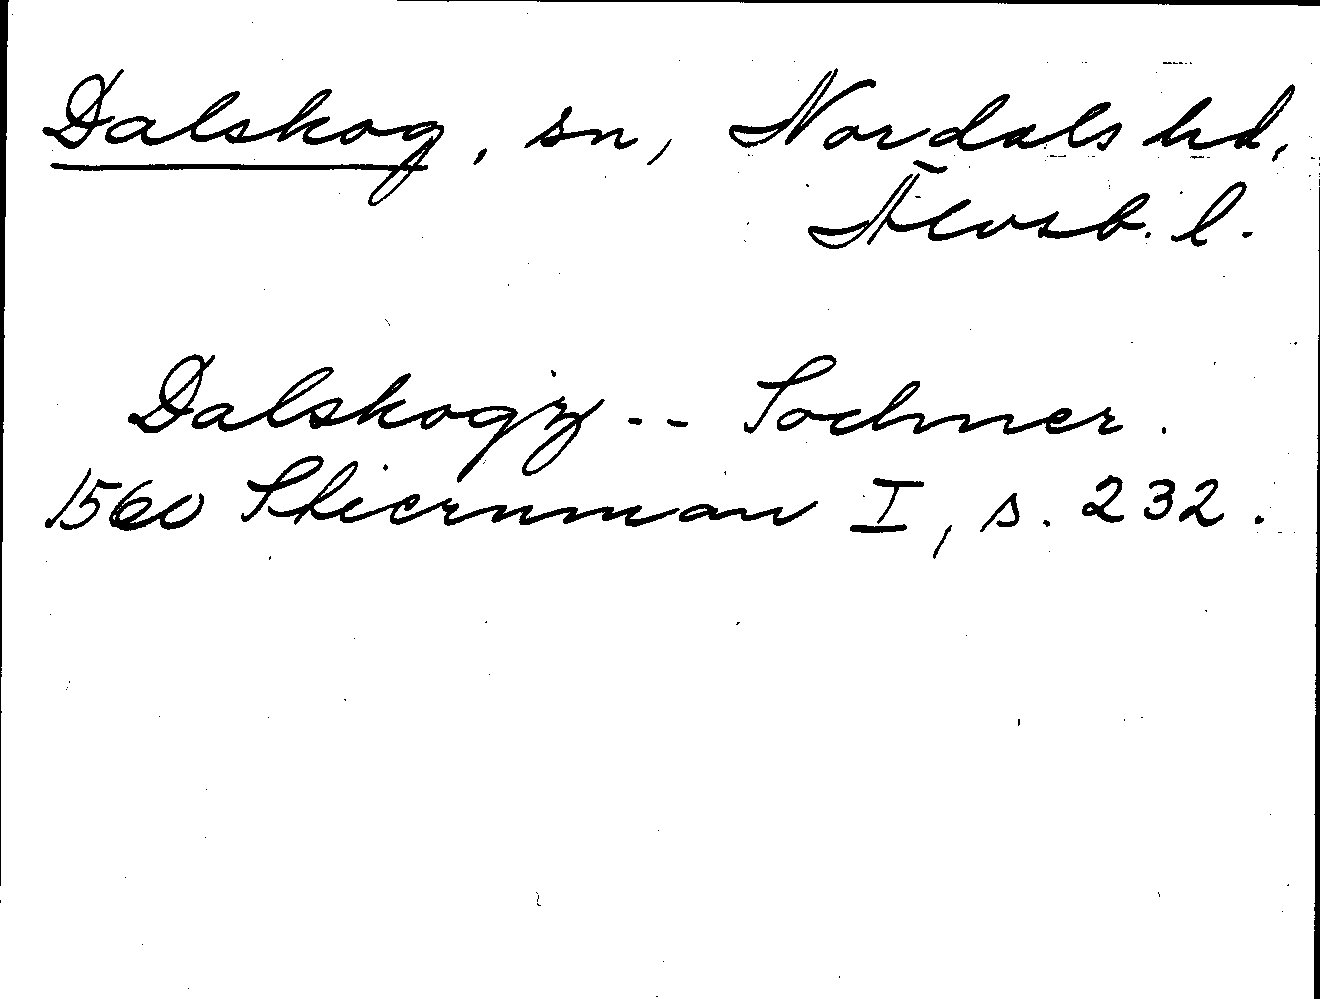 Dalskog, sn, Nordals hd,
Älvsb. l.
Dalskogz -- Sochner.
1560 Stiernman I, s. 232.